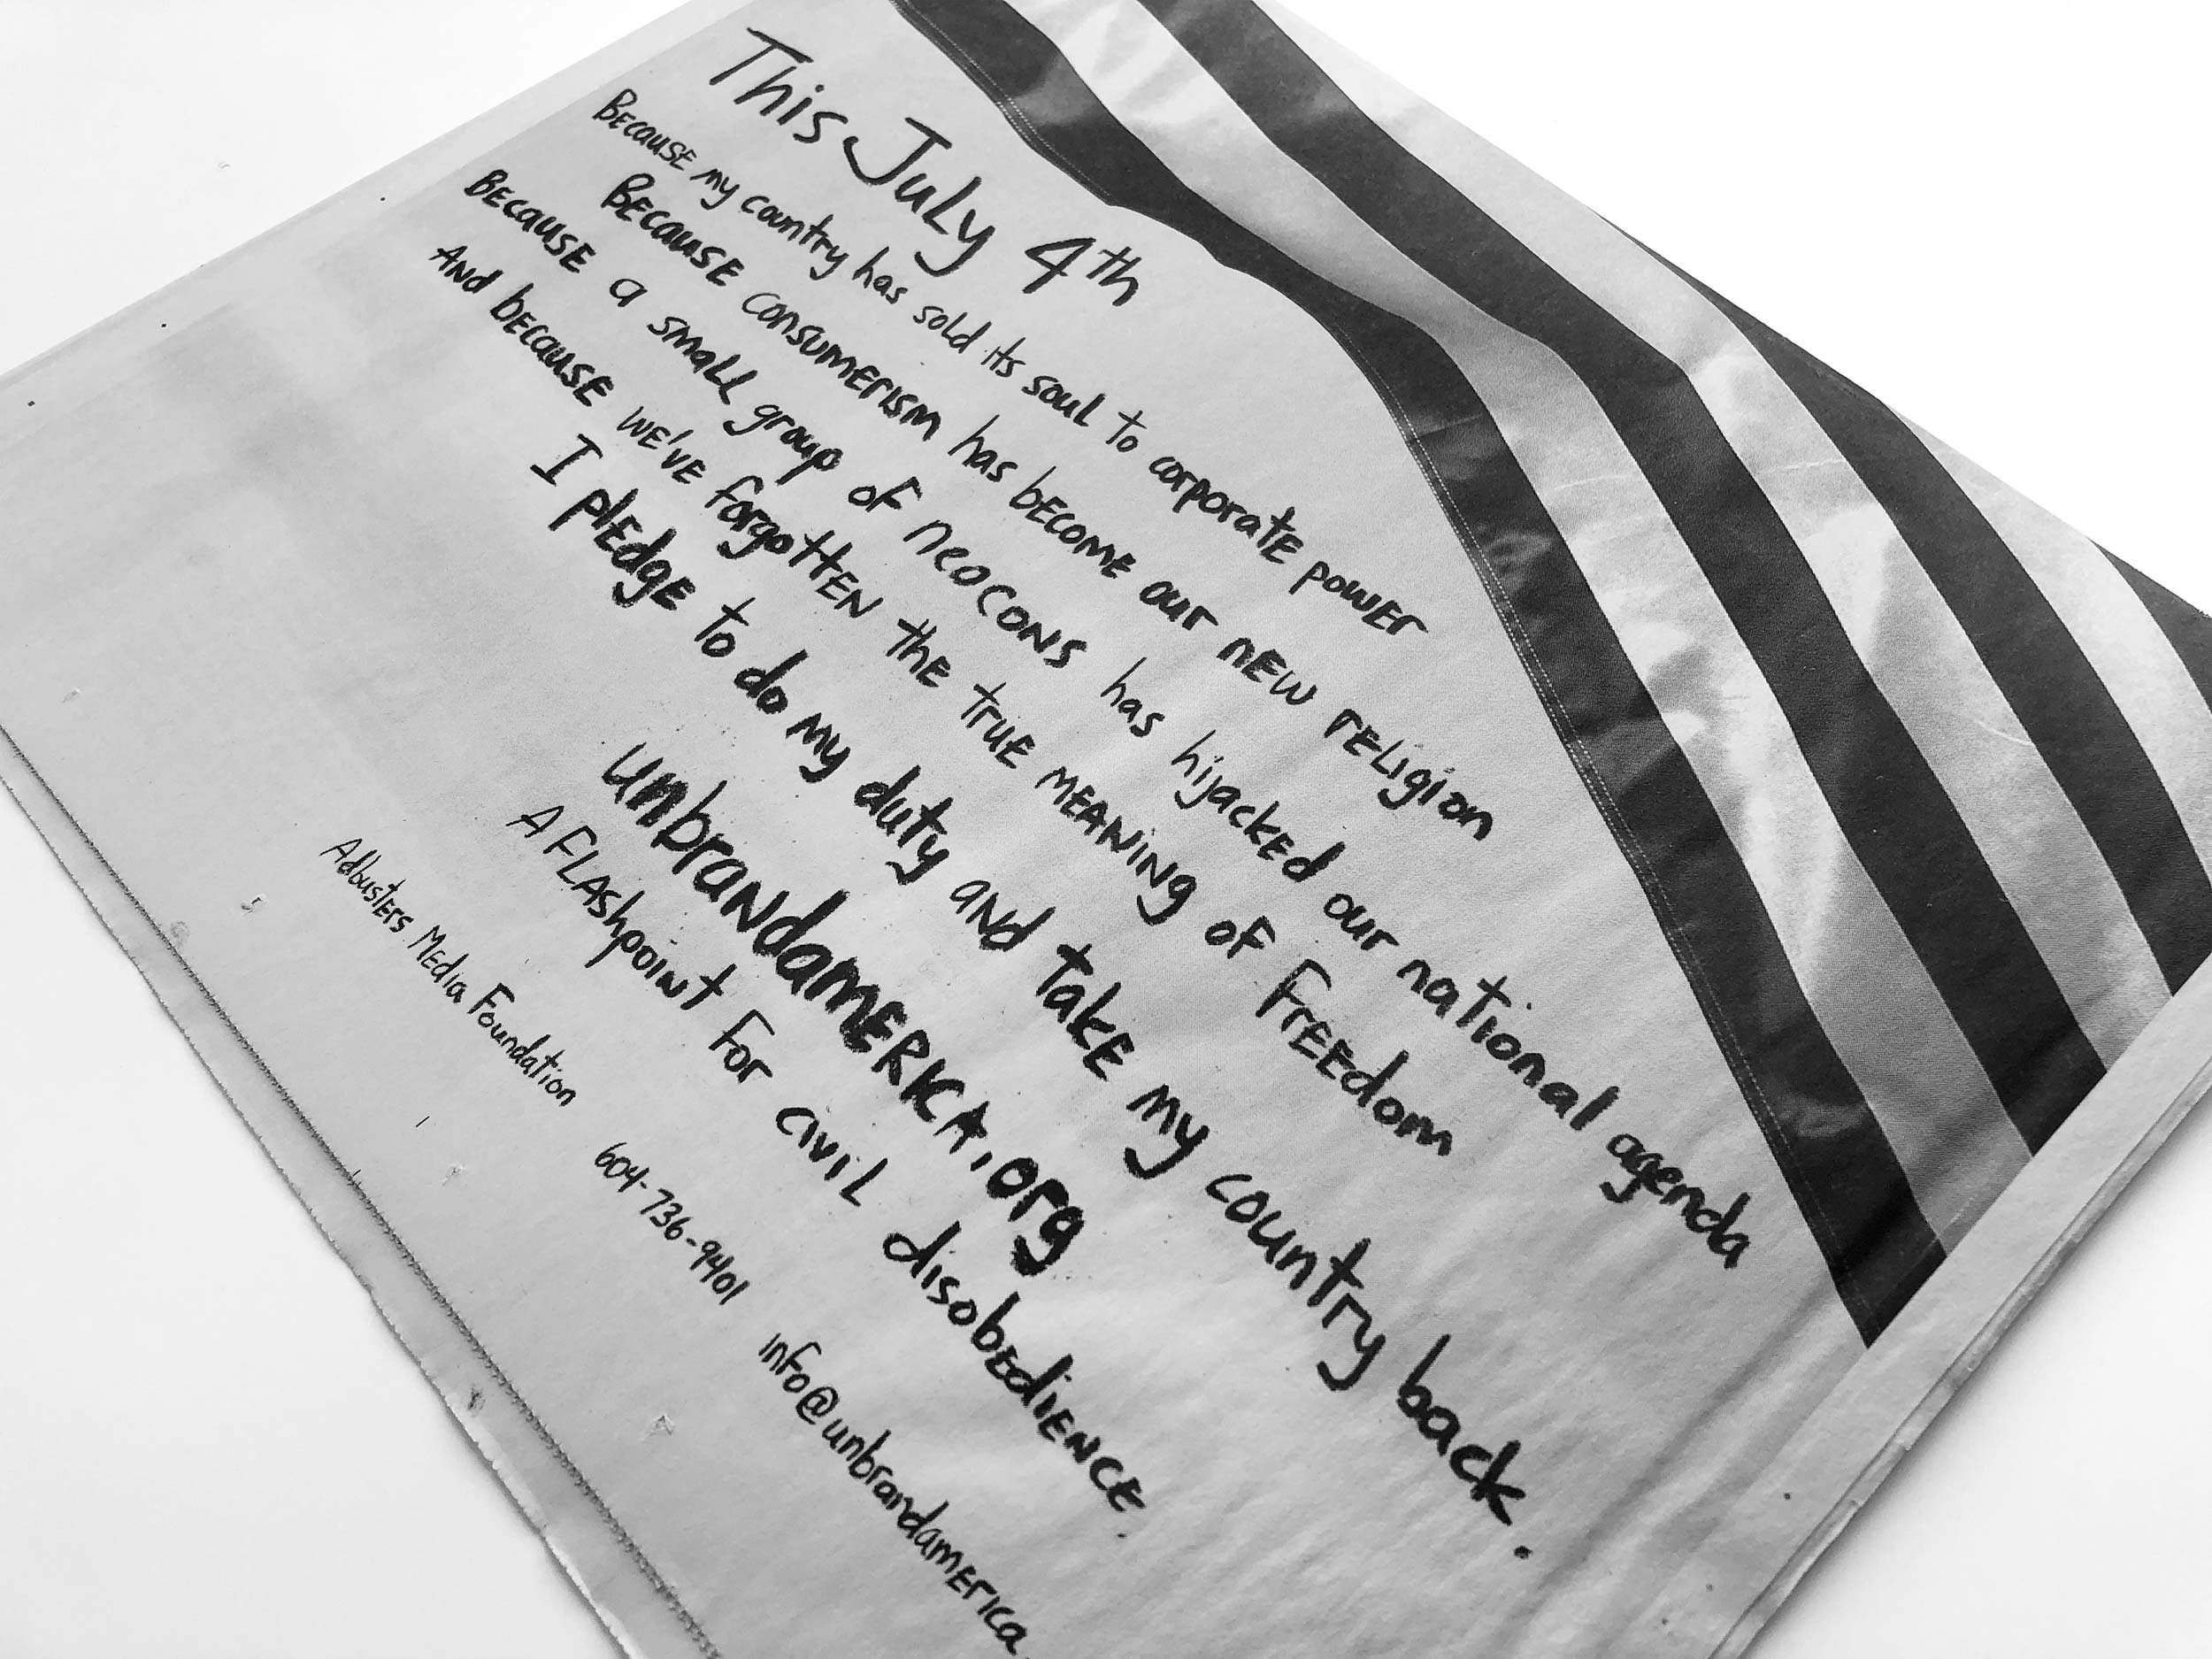 This July 4th
Because my country has sold its soul to corporate power
Because consumerism has become our new religion
Because a small group of neocons has hijacked our national agenda
And because we've forgotten the true meaning of freedom
I pledge to do my duty and take my country back.
unbrandamerica.org
A flashpoint for civil disobedience.
Adbusters Media Foundation 604-736-9401 info@unbrandamerica.